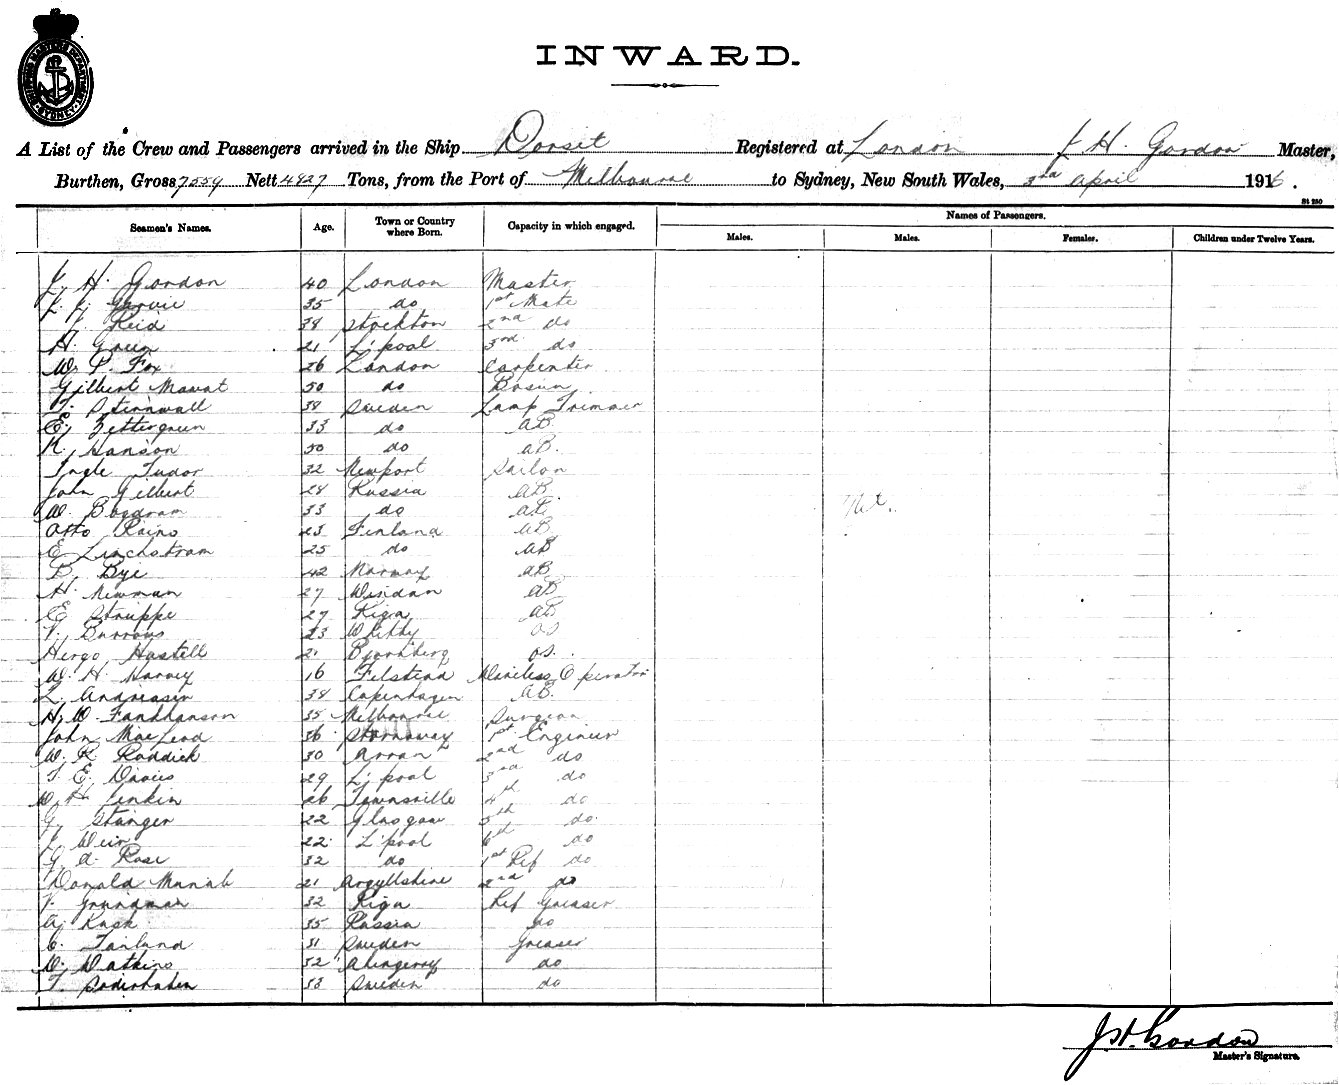 SHIPPING MASTER'S DEPARTMENT SYDNEY
INWARD.
A List of the Crew and Passengers arrived in the Ship Dorset Registered at London J H. Gordon Master,
Burthen, Gross 7559 Nett 4827 Tons, from the Port of Melbourne to Sydney, New South Wales, 3rd April 1916.
Seamen's Names. Age. Town or Country where Born. Capacity in which engaged. Names of Passengers.
Males. Males. Females. Children under Twelve Years.
J. H. Gordon 40 London Master
35 do 1st Mate
J. Reid 38 Stockton 2nd do
H. Green 21 L'pool 3rd do
W. P. Fox 26 London Carpenter
Gilbert Mawat 50 do Bosun
38 Sweden Lamp Trimmer
E. Zettergreen 33 do AB
K. Hanson 50 do AB.
Ingle Tudor 32 Newport Sailor
John Gilbert 28 Russia AB.
W. 33 do AB Nil.
Otto 23 Finland AB
E 25 do AB
B. Bye 42 Norway AB
H. Newman 27 Windau AB
E Struppe 27 Riga AB
V. Burrows 23 Whitby OS
Hergo Hastell 21 OS.
W. H. Harvey 16 Felstead Wireless Operator
L. Andreasen 38 Copenhagen AB.
H. W. 35 Melbourne Surgeon
John MacLeod 36 Stornaway 1st Engineer
W. R. Roddick 30 Arran 2nd do
T. E. Davies 29 L'pool 3rd do
W. H. Jenkin 26 Townsville 4th do
G. Stanger 22 Glasgow 5th do.
J. Weir 22 L'pool 6th do
G. A. Rose 32 do 1st Ref do
Donald 21 Argyllshire 2nd do
J. Grundman 32 Riga Ref Greaser
A. Kask 35 Russia do
C. 31 Sweden Greaser
W. Watkins 32 do
T. 53 Sweden do
J H. Gordon
Master's Signature.